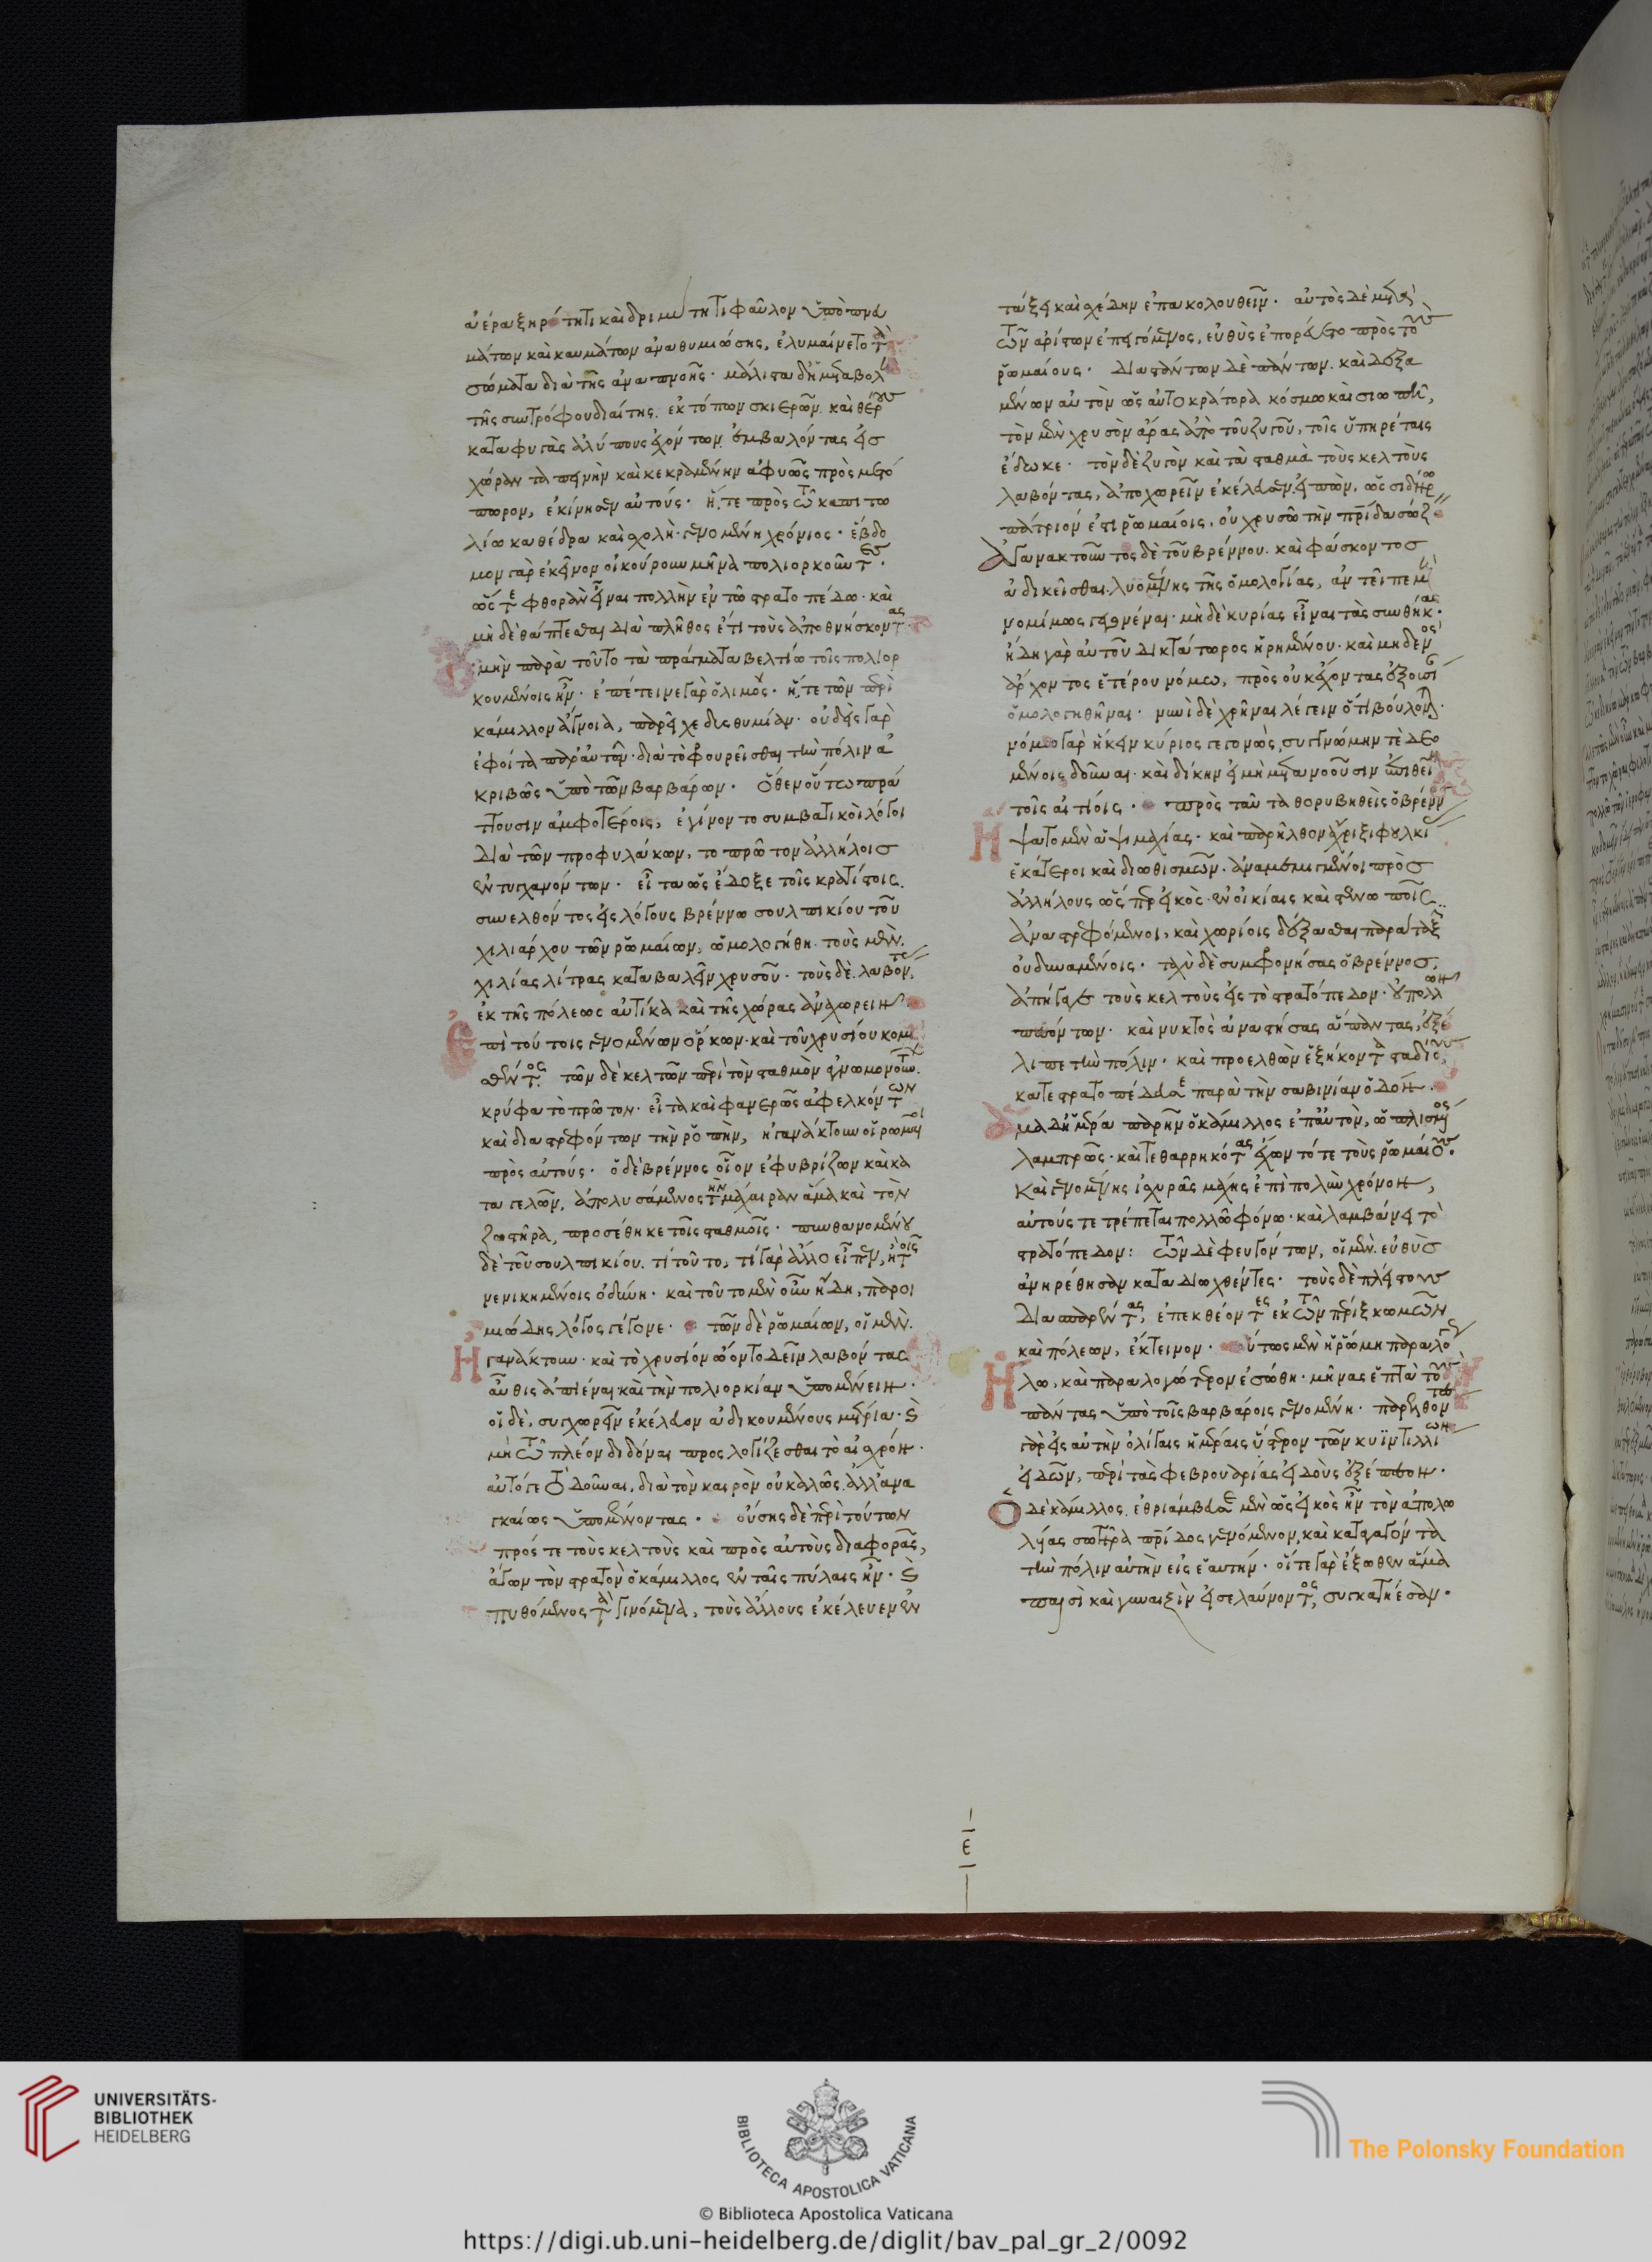 ἀέρα ξηρότητι καὶ δριμύτητι φαῦλον ὑπὸ πνευ
μάτων καὶ καυμάτων ἀναθυμιώσης, ἐλυμαίνετο τὰ
σώματα διὰ τῆς ἀναπνοῆς· μάλιστα δ' ἡ μεταβολὴ
τῆς συντρόφου διαίτης. ἐκ τόπων σκιερῶν καὶ θέρους
καταφυγὰς ἀλύπους ἐχόντων ἐμβαλόντας εἰς
χώραν ταπεινὴν καὶ κεκραμένην ἀφυῶς πρὸς μετό
πωρον, ἐκίνησεν αὐτούς· ἥ, τε πρὸς τῶ καπιτω
λίω καθέδρα καὶ σχολὴ γενομένη χρόνιος· ἕβδο
μον γὰρ ἐκεῖνον οἰκούρουν μῆνα πολιορκοῦντες·
ὥστε φθορὰν εἶναι πολλὴν ἐν τῶ στρατοπέδω· καὶ
μὴ δὲ θάπτεσθαι διὰ πλῆθος ἔτι τοὺς ἀποθνήσκοντας·
μὴν παρὰ τοῦτο τὰ πράγματα βελτίω τοῖς πολιορ
κουμένοις ἦν· ἐπέτεινε γὰρ ὁ λιμός· ἥ, τε τῶν περὶ
κάμιλλον ἄγνοια, παρεῖχε δυσθυμίαν· οὐδεὶς γὰρ
ἐφοίτα παρ' αὐτῶν· διὰ τὸ φρουρεῖσθαι τὴν πόλιν ἀ
κριβῶς ὑπὸ τῶν βαρβάρων· ὅθεν οὕτω πρά
ττουσιν ἀμφοτέροις, ἐγίνοντο συμβατικοὶ λόγοι
διὰ τῶν προφυλάκων, τὸ πρῶτον ἀλλήλοις
ἐντυγχανόντων· εἶτα ὡς ἔδοξε τοῖς κρατίστοις.
συνελθόντος εἰς λόγους βρέννω σουλπικίου τοῦ
χιλιάρχου τῶν ῥωμαίων, ὡμολογήθη τοὺς μὲν
χιλίας λίτρας καταβαλεῖν χρυσοῦ· τοὺς δὲ λαβόντας
ἐκ τῆς πόλεως αὐτίκα καὶ τῆς χώρας ἀναχωρεῖν
Ἐπὶ τούτοις γενομένων ὅρκων· καὶ τοῦ χρυσίου κομι
σθέντος· τῶν δὲ κελτῶν περὶ τὸν σταθμὸν ἀγνωμονούντων
κρύφα τὸ πρῶτον· εἶτα καὶ φανερῶς ἀφελκόντων
καὶ διαστρεφόντων τὴν ῥοπὴν, ἠγανάκτουν οἱ ῥωμαῖοι
πρὸς αὐτούς· ὁ δὲ βρέννος οἷον ἐφυβρίζων καὶ κα
ταγελῶν, ἀπολυσάμενος τὴν μάχαιραν ἅμα καὶ τὸν
ζωστῆρα, προσέθηκε τοῖς σταθμοῖς· πυνθανομένου
δὲ τοῦ σουλπικίου. τί τοῦτο, τί γὰρ ἄλλο εἶπεν, ἢ τοῖς
νενικημένοις ὀδύνη· καὶ τοῦτο μὲν οὖν ἤδη, παροι
μιώδης λόγος γέγονε· τῶν δὲ ῥωμαίων, οἱ μὲν
Ἠγανάκτουν· καὶ τὸ χρυσίον ᾤοντο δεῖν λαβόντας
αὖθις ἀπιέναι καὶ τὴν πολιορκίαν ὑπομένειν·
οἱ δὲ, συγχωρεῖν ἐκέλευον ἀδικουμένους μέτρια· καὶ
μὴ τῶ πλέον διδόναι προσλογίζεσθαι τὸ αἰσχρόν·
αὐτό γε τὸ δοῦναι, διὰ τὸν καιρὸν οὐ καλῶς ἀλλ' ἀνα
γκαίως ὑπομένοντας· οὔσης δὲ περὶ τούτων
πρός τε τοὺς κελτοὺς καὶ πρὸς αὐτοὺς διαφορᾶς,
ἄγων τὸν στρατὸν ὁ κάμιλλος ἐν ταῖς πύλαις ἦν· καὶ
πυθόμενος τὰ γινόμενα, τοὺς ἄλλους ἐκέλευεν ἐν
τάξει καὶ σχέδην ἐπακολουθεῖν· αὐτὸς δὲ μετὰ
τῶν ἀρίστων ἐπειγόμενος, εὐθὺς ἐπορεύετο πρὸς τοὺς
ῥωμαίους· διαστάντων δὲ πάντων καὶ δεξα
μένων αὐτὸν ὡς αὐτοκράτορα κόσμω καὶ σιωπῆ,
τὸν μὲν χρυσὸν ἄρας ἀπὸ τοῦ ζυγοῦ, τοῖς ὑπηρέταις
ἔδωκε· τὸν δὲ ζυγὸν καὶ τὰ σταθμὰ τοὺς κελτοὺς
λαβόντας, ἀποχωρεῖν ἐκέλευσεν εἰπὼν, ὡς σιδήρω
πάτριόν ἐστι ῥωμαίοις, οὐ χρυσῶ τὴν πρίδα σώζειν
Ἀγανακτοῦντος δὲ τοῦ βρέννου καὶ φάσκοντος
ἀδικεῖσθαι λυομένης τῆς ὁμολογίας, ἀντεῖπε μὴ
νομίμως γεγονέναι· μὴ δὲ κυρίας εἶναι τὰς συνθήκας·
ἤδη γὰρ αὐτοῦ δικτάτωρος ἡρημένου· καὶ μηδενὸς
ἄρχοντος ἑτέρου νόμω, πρὸς οὐκ ἔχοντας ἐξουσίαν
ὁμολογηθῆναι· νυνὶ δὲ χρῆναι λέγειν ὅτι βούλονται·
νόμω γὰρ ἥκειν κύριος γεγονὼς, συγγνώμην τε δεο
μένοις δοῦναι· καὶ δίκην εἰ μὴ μετανοοῦσιν ἐπιθεῖναι
τοῖς αἰτίοις· πρὸς ταῦτα θορυβηθεὶς ὁ βρέννος
Ἥψατο μὲν ἁψιμαχίας· καὶ παρῆλθον ἄχρι ξιφουλκίας
ἑκάτεροι καὶ διωθισμῶν· ἀναμεμιγμένοι πρὸς
ἀλλήλους ὥσπερ εἰκὸς ἐν οἰκίαις καὶ στενωποῖς
ἀναστρεφόμενοι, καὶ χωρίοις δέξασθαι παράταξιν
οὐ δυναμένοις· ταχὺ δὲ συμφρονήσας ὁ βρέννος,
ἀπήγαγε τοὺς κελτοὺς εἰς τὸ στρατόπεδον· οὐ πολλῶν
πεσόντων· καὶ νυκτὸς ἀναστήσας ἅπαντας, ἐξέ
λιπε τὴν πόλιν· καὶ προελθὼν ἑξήκοντα σταδίους,
κατεστρατοπέδευσε παρὰ τὴν σαβινίαν ὁδόν·
Ἅμα δ' ἡμέρα παρῆν ὁ κάμιλλος ἐπ' αὐτὸν, ὡπλισμένος
λαμπρῶς· καὶ τεθαρρηκότας ἔχων τότε τοὺς ῥωμαίους·
καὶ γενομένης ἰσχυρᾶς μάχης ἐπὶ πολὺν χρόνον,
αὐτούς τε τρέπεται πολλῶ φόνω· καὶ λαμβάνει τὸ
στρατόπεδον: τῶν δὲ φευγόντων, οἱ μὲν εὐθὺς
ἀνηρέθησαν καταδιωχθέντες· τοὺς δὲ πλείστους
διασπαρέντας, ἐπεκθέοντες ἐκ τῶν πέριξ κωμῶν
καὶ πόλεων, ἔκτεινον· οὕτως μὲν ἡ ῥώμη παραλό
Ἥλω, καὶ παραλογώτερον ἐσώθη· μῆνας ἑπτὰ τοὺς
πάντας ὑπὸ τοῖς βαρβάροις γενομένη· παρελθόντες
γὰρ εἰς αὐτὴν ὀλίγαις ἡμέραις ὕστερον τῶν κυϊντιλλίων
εἰδῶν, περὶ τὰς φεβρουαρίας εἰδοὺς ἐξέπεσον·
Ὁ δὲ κάμιλλος ἐθριάμβευσε μὲν ὡς εἰκὸς ἦν τὸν ἀπολω
λυίας σωτῆρα πρίδος γενόμενον, καὶ κατάγοντα
τὴν πόλιν αὐτὴν εἰς ἑαυτήν· οἵ τε γὰρ ἔξωθεν ἅμα
παισὶ καὶ γυναιξὶν εἰσελαύνοντος, συγκατήεσαν·
ε
UNIVERSITÄTS-
BIBLIOTHEK
HEIDELBERG
BIBLIOTECA APOSTOLICA VATICANA
The Polonsky Foundation
© Biblioteca Apostolica Vaticana
https://digi.ub.uni-heidelberg.de/diglit/bav_pal_gr_2/0092